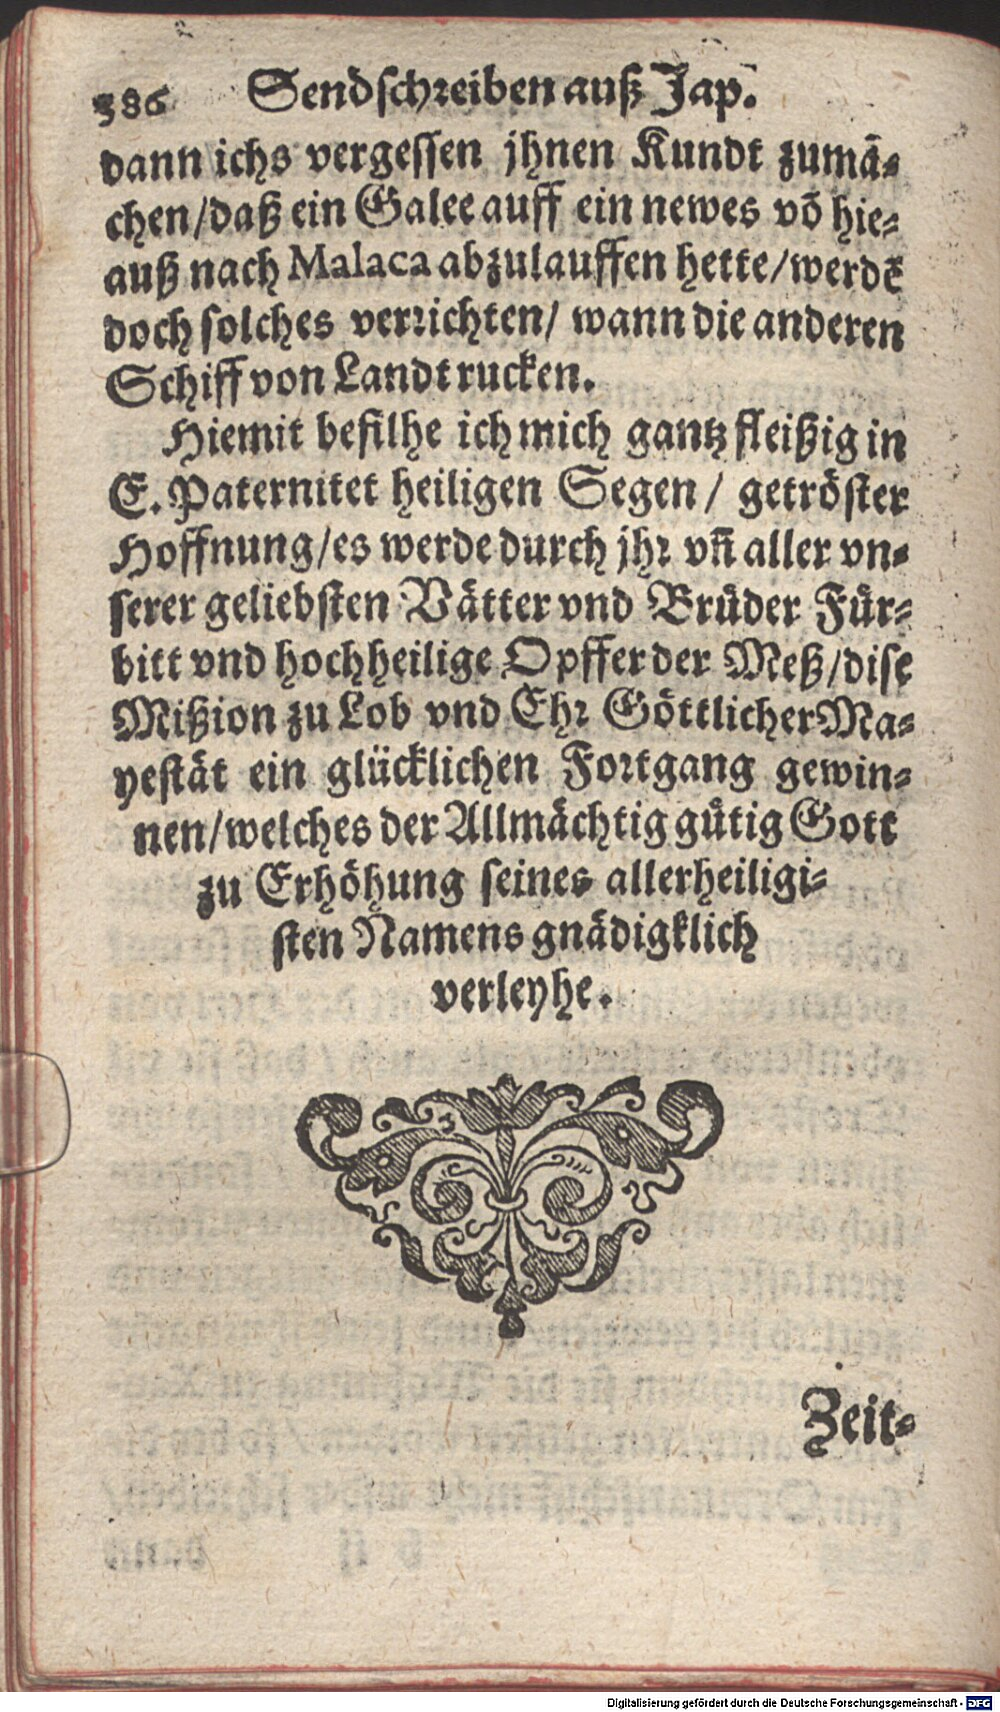 386 Sendschreiben auß Jap.
dann ichs vergessen jhnen Kundt zumā-
chen/daß ein Galee auff ein newes vō hie-
auß nach Malaca abzulauffen hette/werdē
doch solches verrichten/ wann die anderen
Schiff von Landt rucken.
Hiemit befilhe ich mich gantz fleißig in
E. Paternitet heiligen Segen/ getröster
Hoffnung/es werde durch jhr vn̄ aller vn-
serer geliebsten Vätter vnd Brüder Für-
bitt vnd hochheilige Opffer der Meß/dise
Mißion zu Lob vnd Ehr Göttlicher Ma-
yestät ein glücklichen Fortgang gewin-
nen/welches der Allmächtig gütig Gott
zu Erhöhung seines allerheiligi-
sten Namens gnädigklich
verleyhe.
Zeit-
Digitalisierung gefördert durch die Deutsche Forschungsgemeinschaft - DFG